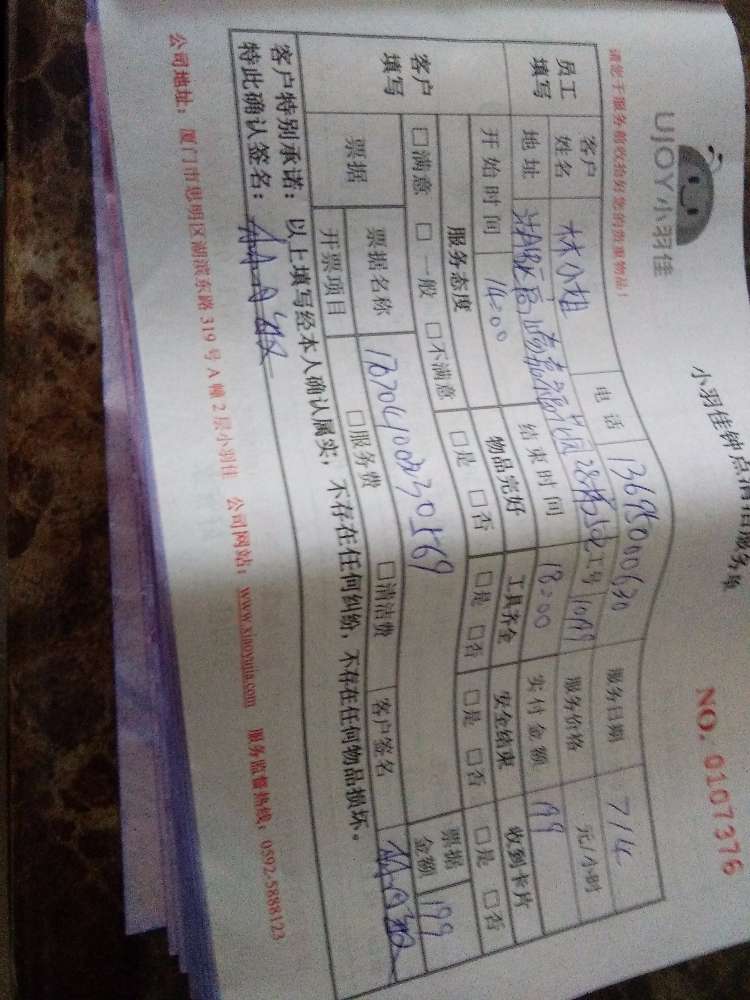 小羽佳钟点清洁服务单
UJOY小羽佳
NO. 0107376
请您于服务前收拾好您的贵重物品！
员工填写
客户姓名 林小姐 电话 13695000630 服务日期 7/4
地址 28号 工号 服务价格 元/小时
开始时间 14:00 结束时间 18:00 实付金额 199
客户填写
服务态度 物品完好 工具齐全 安全结束 收到卡片
□满意 □一般 □不满意 □是 □否 □是 □否 □是 □否 □是 □否
票据 票据名称 票据金额 199
开票项目 □服务费 □清洁费 客户签名
客户特别承诺：以上填写经本人确认属实，不存在任何纠纷，不存在任何物品损坏。
特此确认签名：
公司地址：厦门市思明区湖滨东路319号A幢2层小羽佳 公司网站：www.xiaoyujia.com 服务监督热线：0592-5888123